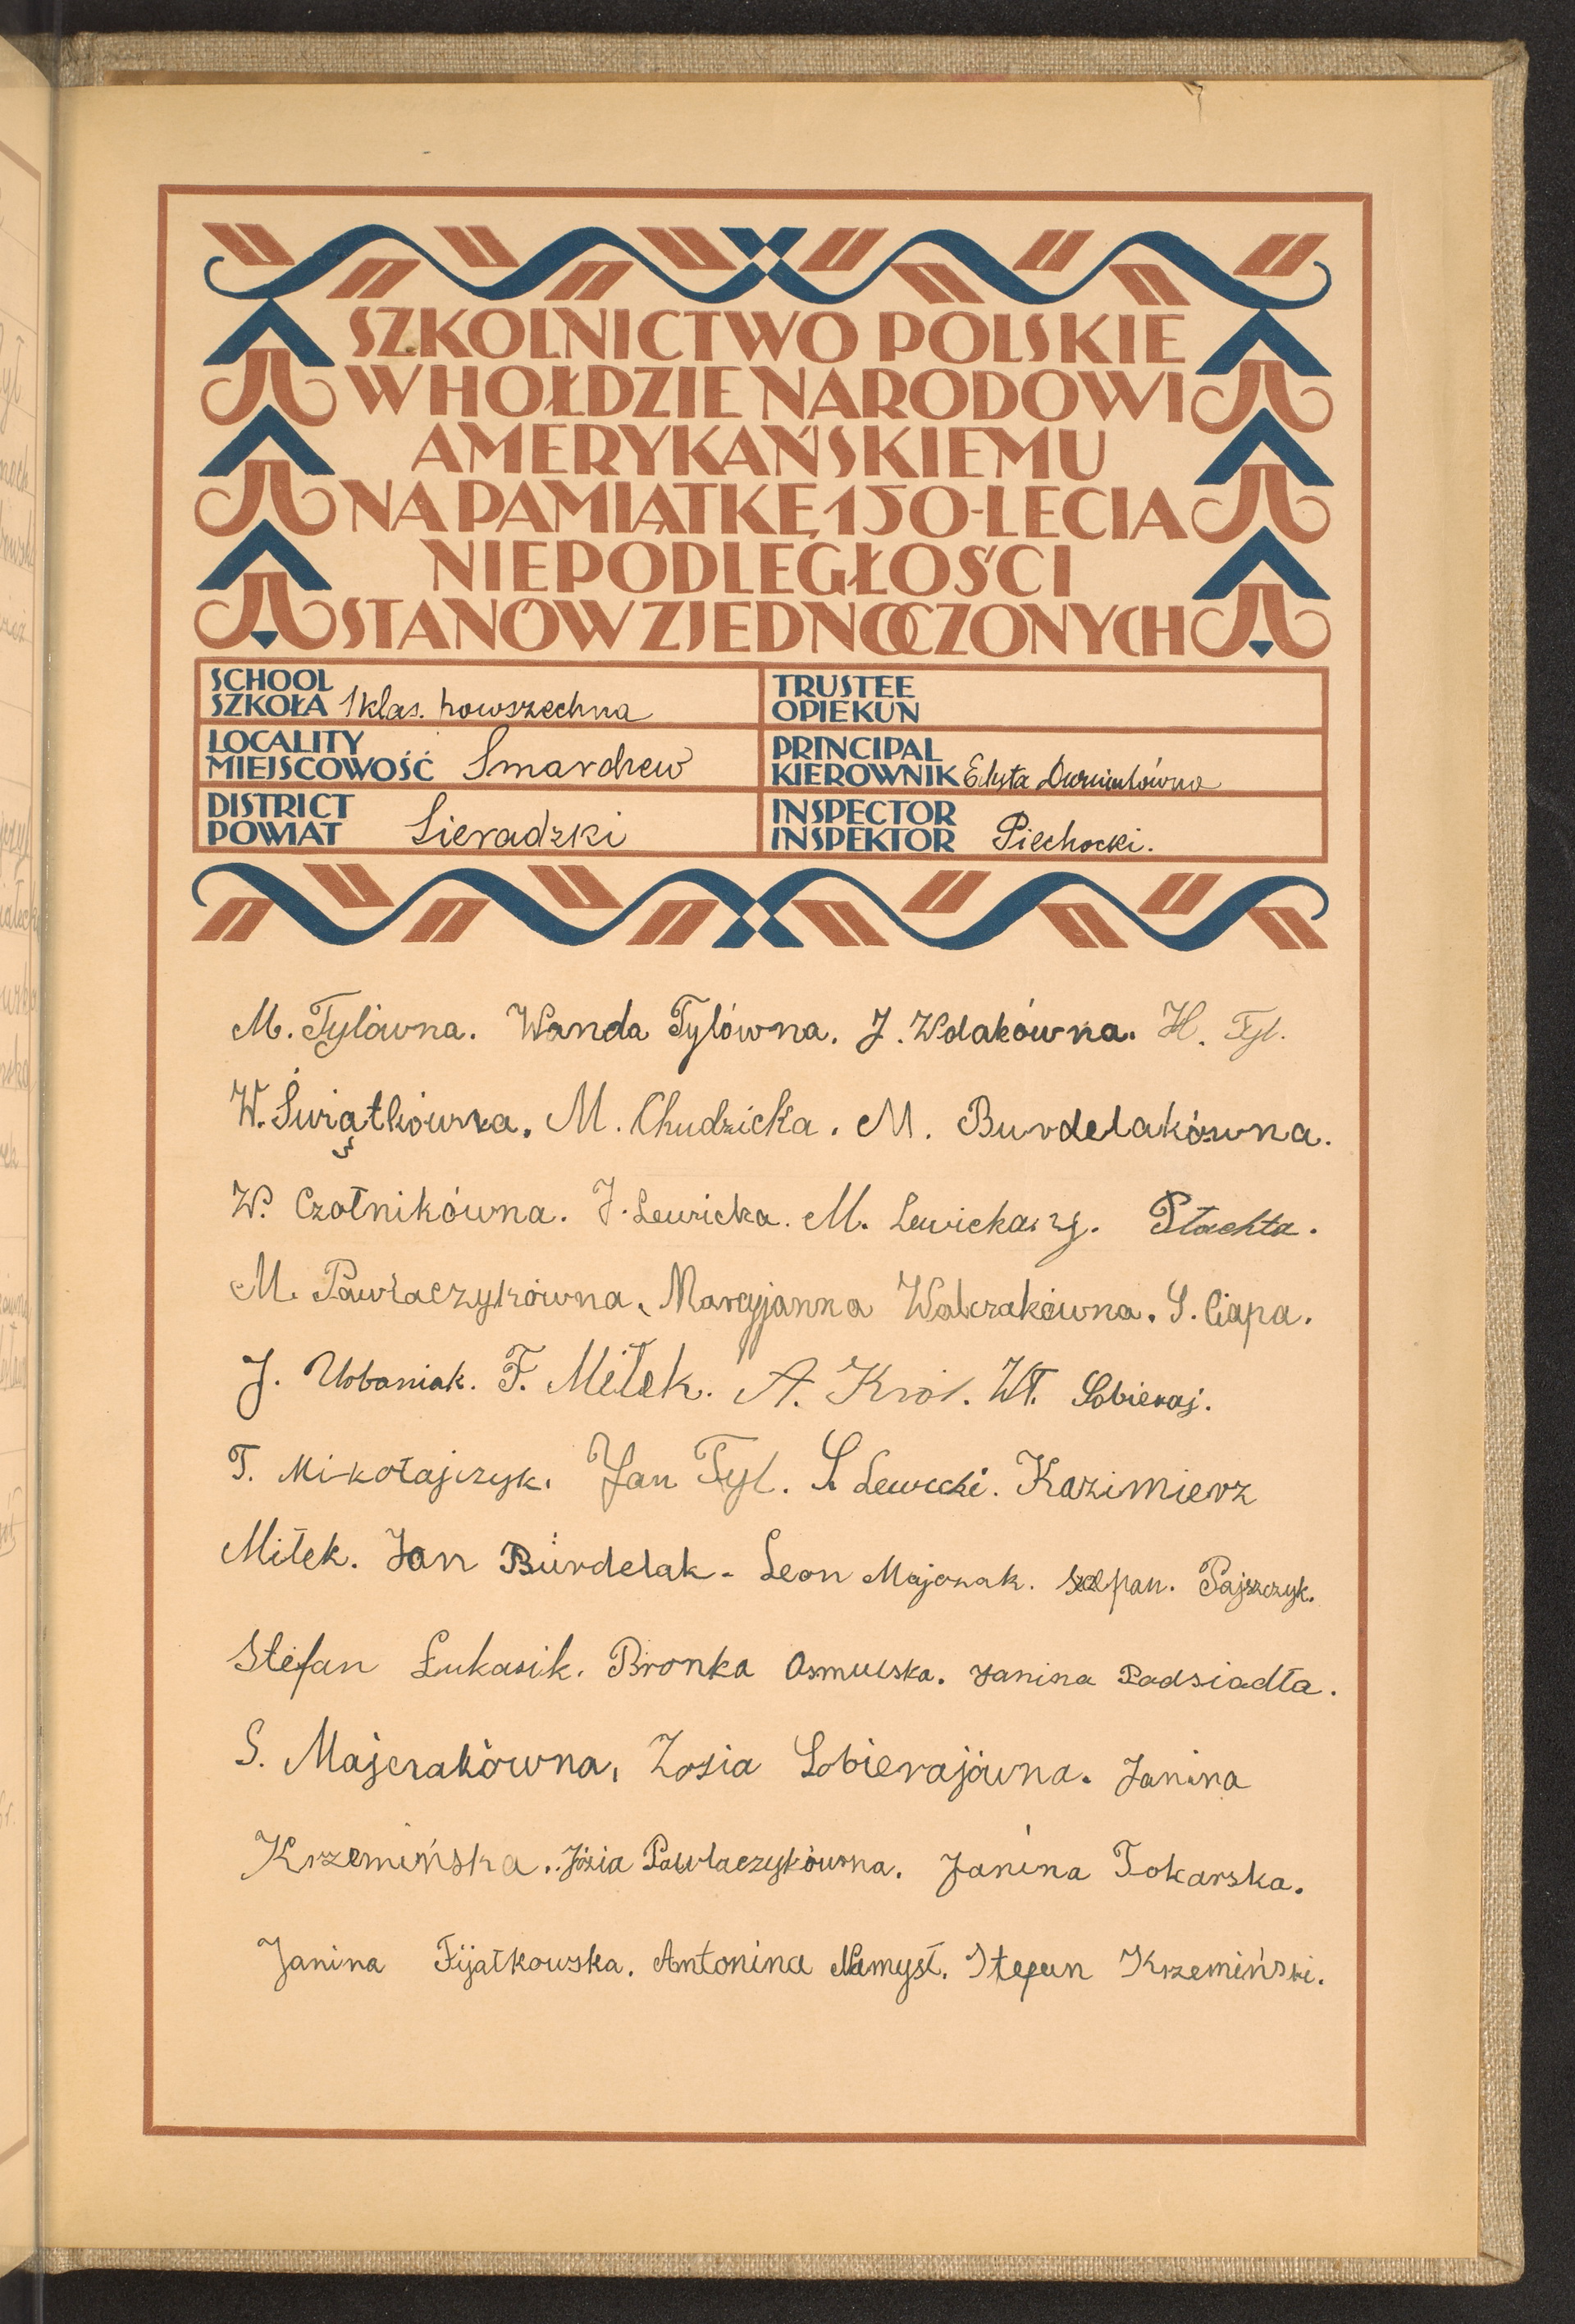 SZKOLNICTWO POLSKIE
W HOŁDZIE NARODOWI
AMERYKAŃSKIEMU
NA PAMIĄTKĘ 150-LECIA
NIEPODLEGŁOŚCI
STANÓW ZJEDNOCZONYCH
SCHOOL
SZKOŁA 1 klas. powszechna
TRUSTEE
OPIEKUN
LOCALITY
MIEJSCOWOŚĆ Smardzew
PRINCIPAL
KIEROWNIK Edyta
DISTRICT
POWIAT Sieradzki
INSPECTOR
INSPEKTOR Piechocki.
M. Tylówna. Wanda Tylówna. J. Wolakówna. H. Tyl.
W. Świątkówna. M. Chudzicka. M. Burdelakówna.
W. Czołnikówna. J. Lewicka. M. Lewicka. Płachta.
M. Pawlaczykówna. Maryjanna Walczakówna. S. Ciapa.
J. Urbaniak. F. Miłek. A. Król. Wł. Sobieraj.
T. Mikołajczyk. Jan Tyl. S. Lewicki. Kazimierz
Miłek. Jan Burdelak. Leon Majczak. Pajszczyk.
Stefan Łukasik. Bronka Osmulska. Janina Podsiadła.
S. Majcrakówna, Zosia Sobierajówna. Janina
Krzemińska. Józia Pawlaczykówna. Janina Tokarska.
Janina Fijałkowska. Antonina Namysł. Stefan Krzemiński.